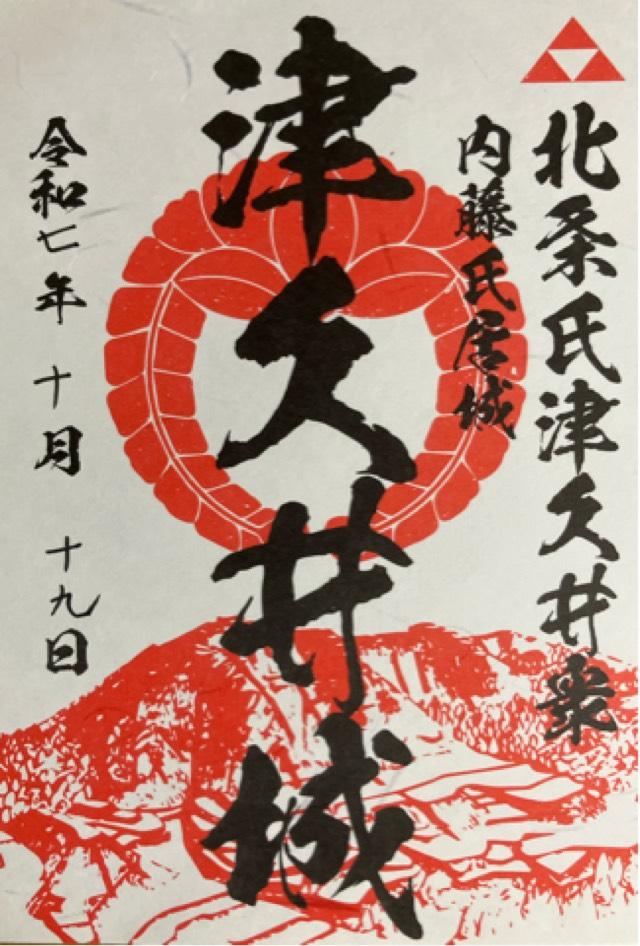 北条氏津久井衆
内藤氏居城
津久井城
令和七年 十月 十九日